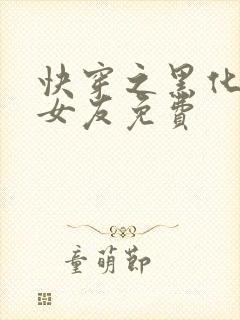 快穿之黑化
女友免費
童萌節